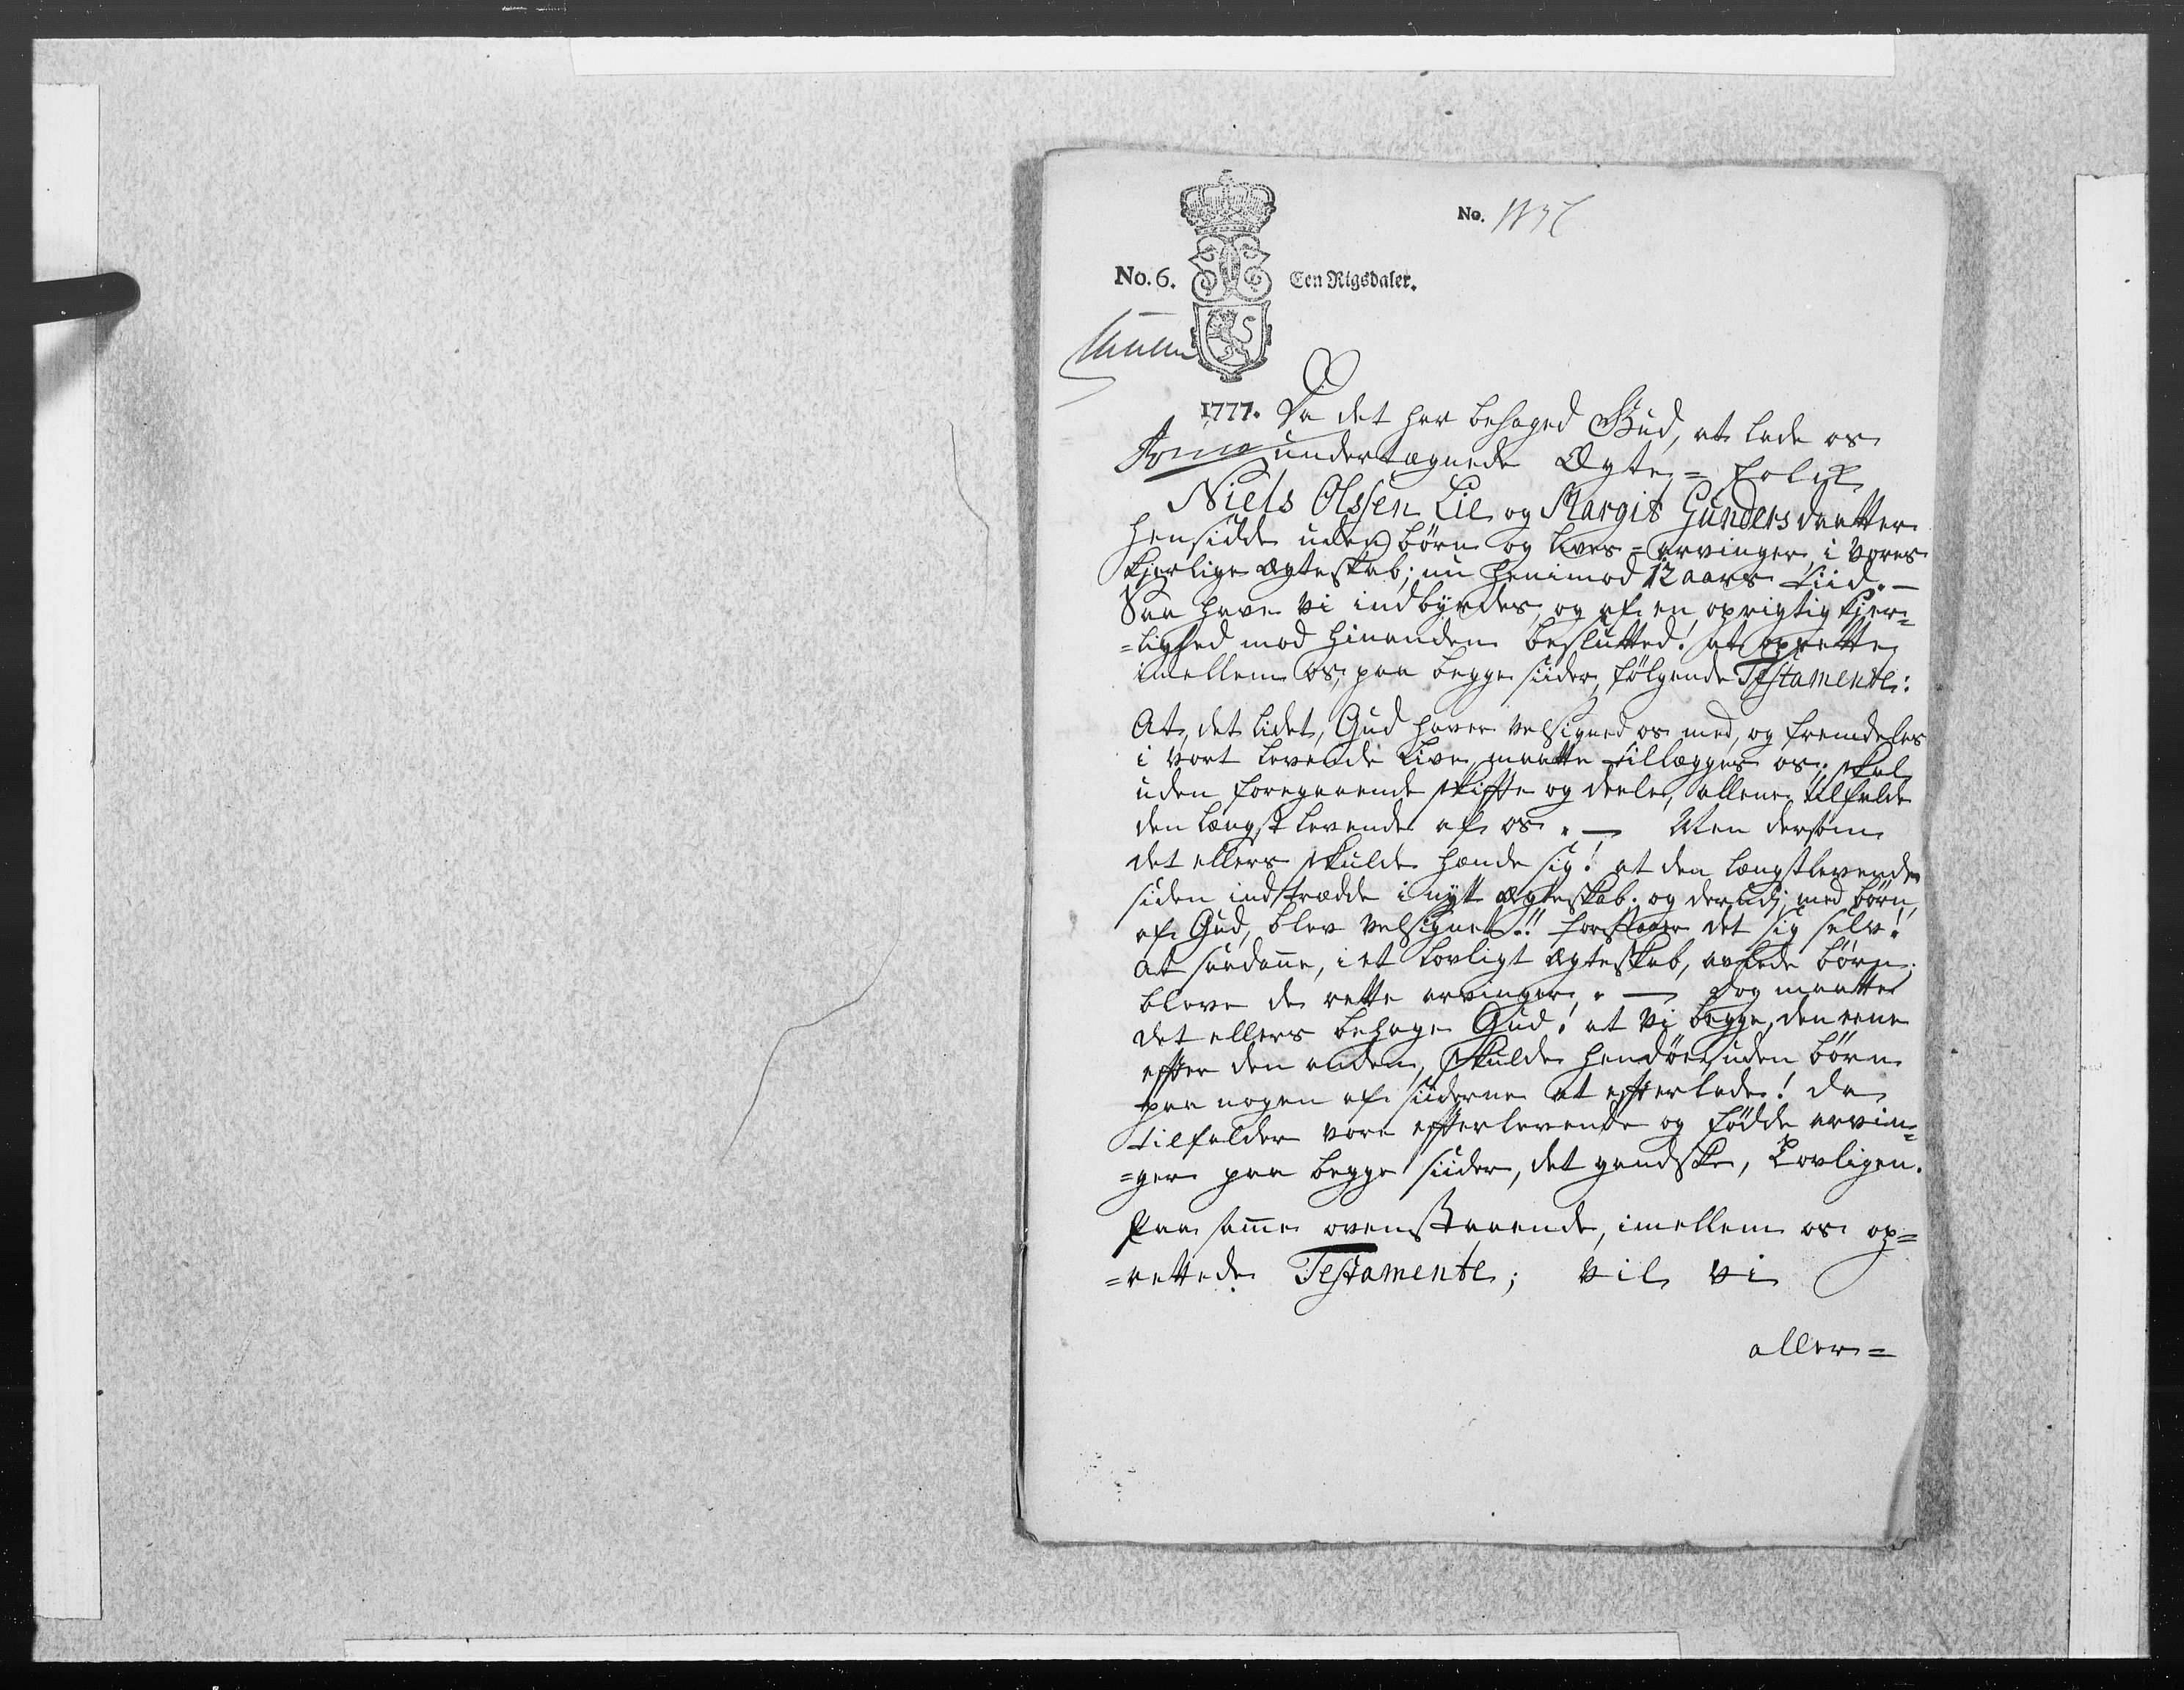 No.
No. 6. Een Rigsdaler.
1777. Da det har behaged Gud, at lade os
undertægnede Ægte= folk
Niels Olssen Lie og Margit Gundersdaatter
hensidde uden børn og livs=arvinger i vores
kjerlige ægteskab; nu henimod 12 aars tiid. —
Saa have vi indbyrdes, og af en oprigtig kjer=
=lighed mod hinanden beslutted! at oprette
imellem os, paa begge siider, følgende Testamente:
At, det lidet, Gud haver velsigned os med, og fremdeles
i vort levende Live, maatte tillægges os; skal
uden foregaaende skifte og deele, allene tilfalde
den længst levende af os. — Men dersom
det ellers skulde hænde sig! at den længstlevende
siden indtrædde i nyt ægteskab. og derudj med børn,
af Gud, blev velsignet!! forstaaer det sig selv!
At saadanne, i et lovligt ægteskab, avlede børn;
bleve de rette arvinger. — Dog maatte
det ellers behage Gud! at vi begge, den eene
efter den anden, skulde hendøe, uden børn
paa nogen af siiderne at efterlade! da
tilfalder vore efterlevende og fødde arvin=
=ger paa begge siider, det gandske, Lovligen.
Paa samme ovenstaaende, imellem os op=
=rettede Testamente; vil vi
aller=